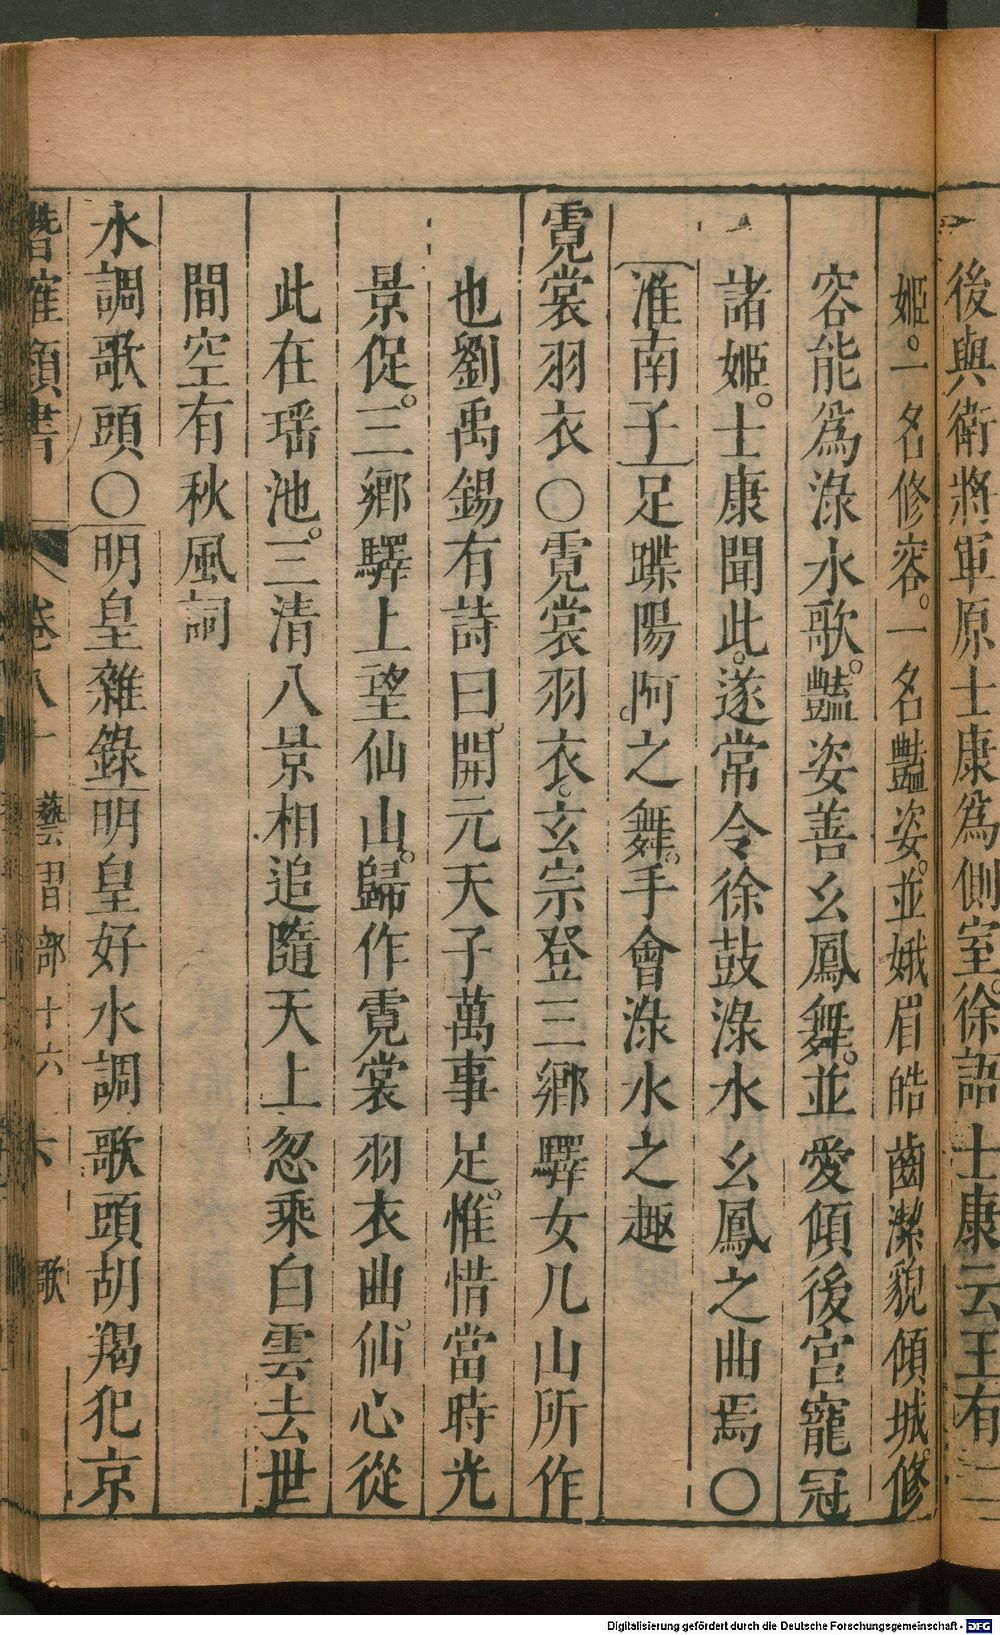 後與衛將軍原士康為側室。徐語士康云王有二
姬。一名修容。一名豔姿。並娥眉皓齒潔貌傾城。修
容能為淥水歌。豔姿善么鳳舞。並愛傾後宮寵冠
諸姬。士康聞此。遂常令徐鼓淥水么鳳之曲焉○
淮南子足蹀陽阿之舞。手會淥水之趣
霓裳羽衣○霓裳羽衣。玄宗登三鄉驛女几山所作
也劉禹錫有詩曰。開元天子萬事足。惟惜當時光
景促。三鄉驛上望仙山。歸作霓裳羽衣曲。仙心從
此在瑶池。三清八景相追隨天上忽乘白雲去世
間空有秋風詞
水調歌頭○明皇雜錄明皇好水調歌頭胡羯犯京
潛確類書
卷八十
藝習部十六
六
歌
Digitalisierung gefördert durch die Deutsche Forschungsgemeinschaft - DFG